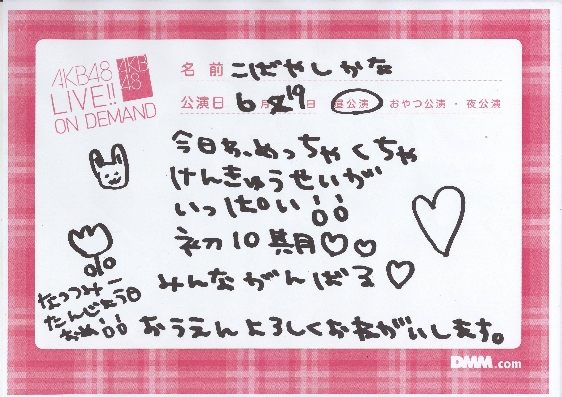 AKB48
LIVE!!
ON DEMAND
AKB
48
名前 こばやしかな
公演日 6月19日 昼公演 おやつ公演・夜公演
今日わ、めっちゃくちゃ
けんきゅうせいが
いっぱい!!
初10期♡♡
みんながんばる♡
なっつみー
たんじょう日
おめ!!
おうえんよろしくおねがいします。
DMM.com